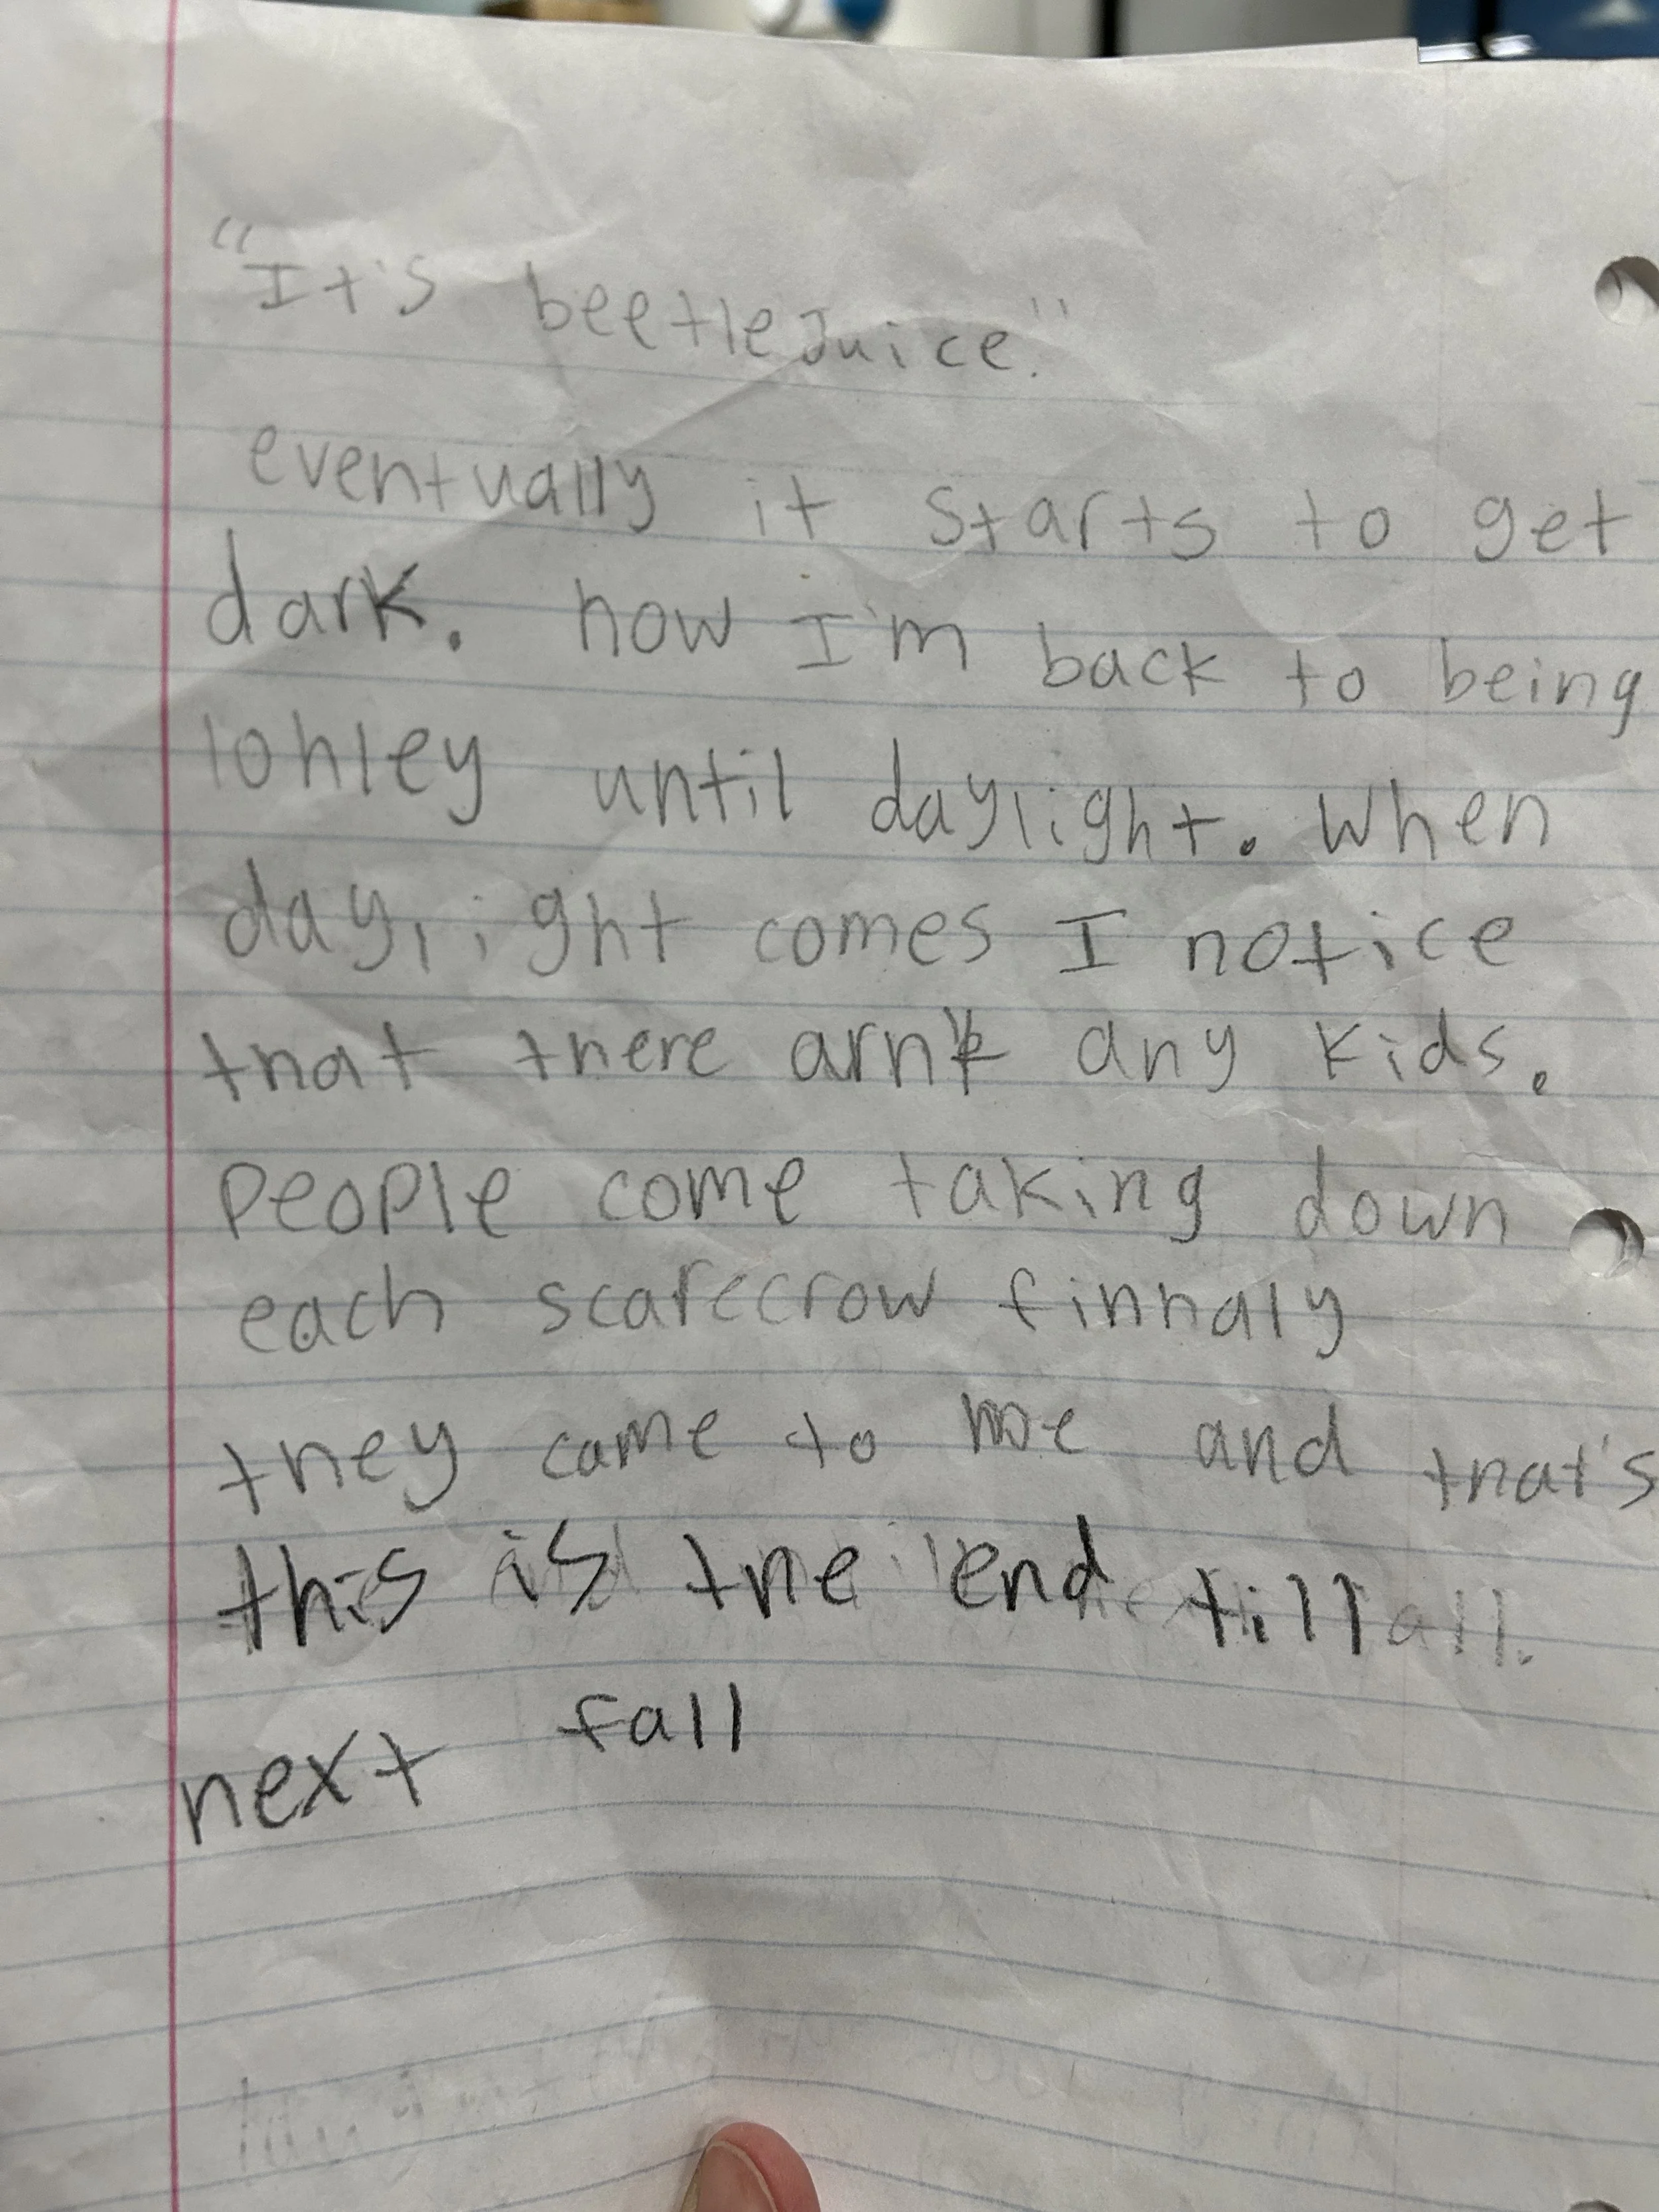 "It's beetleJuice."
eventually it starts to get
dark. now I'm back to being
lonley until daylight. When
daylight comes I notice
that there arn't any kids.
People come taking down
each scarecrow finnaly
they came to me and that's
this is the end till
next fall